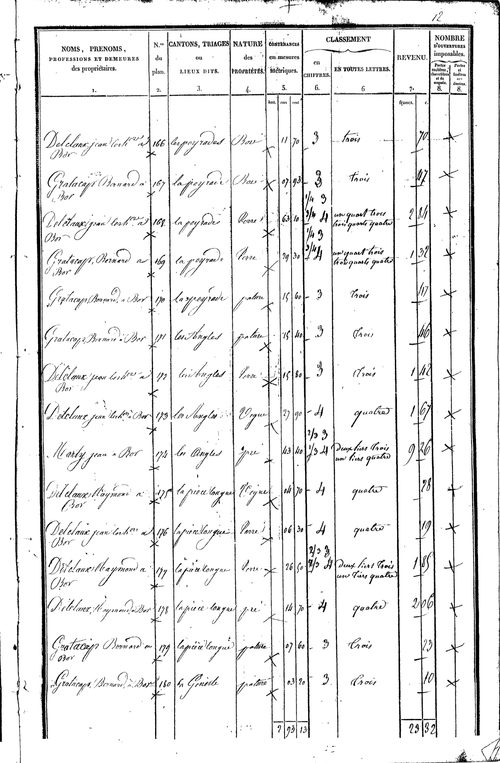 12
NOMS, PRENOMS,
PROFESSIONS ET DEMEURES
des propriétaires.
1.
N.os
du
plan.
2.
CANTONS, TRIAGES
ou
LIEUX DITS.
3.
NATURE
des
PROPRIÉTÉS.
4.
CONTENANCES
en mesures
métriques.
5.
CLASSEMENT
en
CHIFFRES.
6.
EN TOUTES LETTRES.
6
REVENU.
7.
NOMBRE
D'OUVERTURES
imposables.
8.
8.
francs. c.
Delclaux jean à Bor 166 les peyrades Bois 11 70 3 trois 70
Gratacap Bernard à Bor 167 la peyrade Bois 07 93 3 trois 47
Delclaux jean à Bor 168 la peyrade Terre 63 10 1/4 3 3/4 4 un quart trois trois quarts quatre 2 84
Gratacap, Bernard à Bor 169 la peyrade Terre 29 30 1/4 3 3/4 4 un quart trois trois quarts quatre 1 32
Gratacap, Bernard, à Bor 170 la peyrade pature 15 60 3 trois 47
Gratacap Bernard à Bor 171 les Angles pature 15 40 3 trois 46
Delclaux jean à Bor 172 les Angles Terre 15 80 3 trois 1 42
Delclaux jean à Bor 173 les Angles Vigne 27 90 4 quatre 1 67
Marty jean à Bor 174 les Angles pré 43 40 2/3 3 1/3 4 Deux tiers trois un tiers quatre 9 26
Delclaux Raymond à Bor 175 la pièce longue Vigne 04 70 4 quatre 28
Delclaux jean à Bor 176 la pièce longue Terre 06 30 4 quatre 19
Delclaux Raymond à Bor 177 la pièce longue Terre 26 50 2/3 3 4 Deux tiers trois un tiers quatre 1 85
Delclaux, Raymond, à Bor 178 la pièce longue pré 14 70 4 quatre 2 06
Gratacap Bernard à Bor 179 la pièce longue pature 07 60 3 trois 23
Gratacap, Bernard, à Bor 180 la Gineste pature 03 20 3 trois 10
2 93 13 23 32